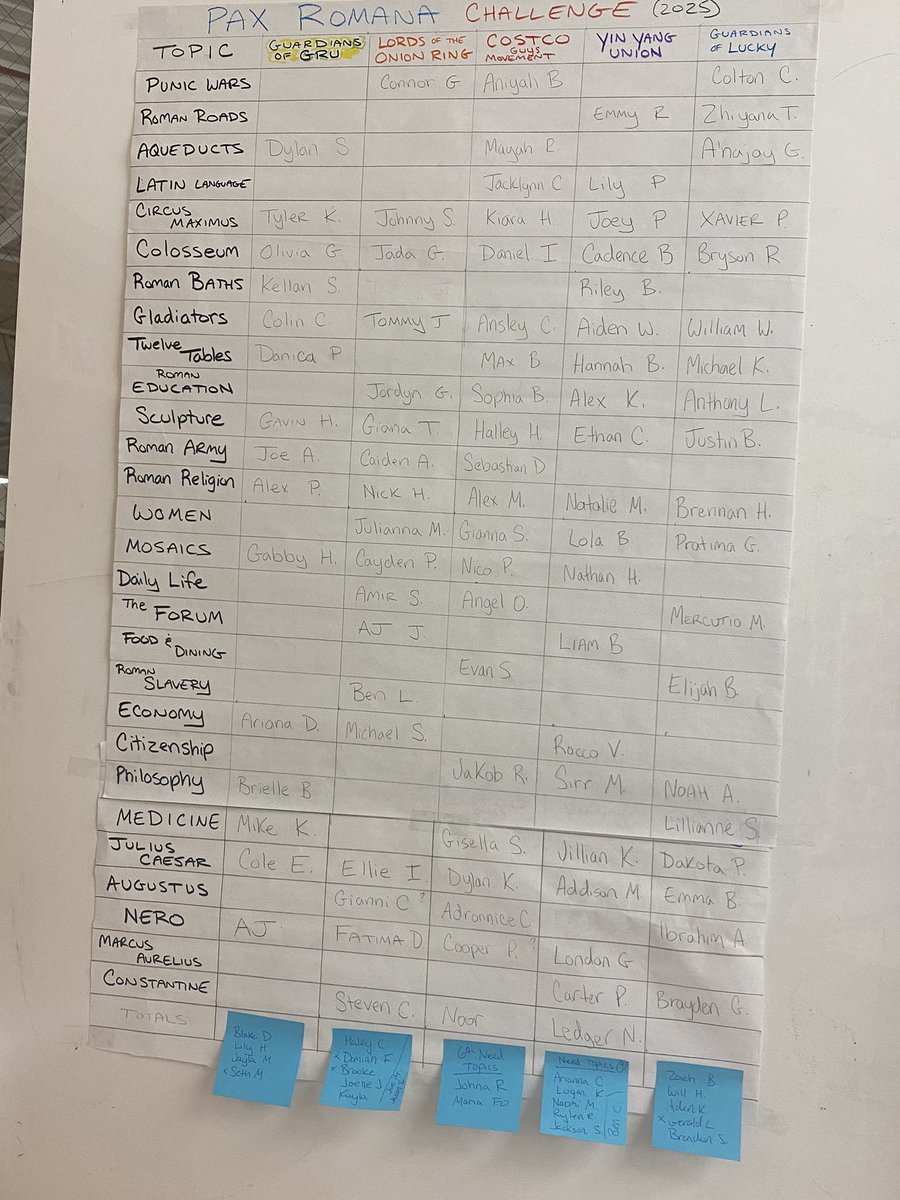 PAX ROMANA CHALLENGE (2025)
TOPIC GUARDIANS OF GRU LORDS OF THE ONION RING COSTCO GUYS MOVEMENT YIN YANG UNION GUARDIANS OF LUCKY
PUNIC WARS Connor G. Aniyah B Colton C.
ROMAN ROADS EMMY R Zhiyana T.
AQUEDUCTS Dylan S Mayah R. A'najay G.
LATIN LANGUAGE Jacklynn C Lily P
CIRCUS MAXIMUS Tyler K. Johnny S. Kiara H. Joey P XAVIER P.
Colosseum Olivia G Jada G. Daniel I Cadence B Bryson R
Roman BATHS Kellan S. Riley B.
Gladiators Colin C TOMMY J Ansley C. Aiden W. William W.
Twelve Tables Danica P MAX B. Hannah B. Michael K.
ROMAN EDUCATION Jordyn G. Sophia B. Alex K. Anthony L.
Sculpture GAVIN H. Giana T. Halley H. Ethan C. Justin B.
Roman ARMY Joe A. Caiden A. Sebastian D
Roman Religion Alex P. Nick H. Alex M. Natalie M. Brennan H.
WOMEN Julianna M. Gianna S. Lola B Pratima G.
MOSAICS Gabby H. Cayden P. Nico P. Nathan H.
Daily Life AMIR S. Angel O. MERCUTIO M.
The FORUM AJ J LIAM B
FOOD & DINING Evan S. Elijah B.
ROMAN SLAVERY Ben L.
ECONOMY Ariana D. Michael S. Rocco V.
Citizenship JaKob R. Sirr M. NOAH A.
Philosophy Brielle B Lillianne S.
MEDICINE Mike K. Gisella S. Jillian K. DaKota P.
JULIUS CAESAR Cole E. Ellie I. Dylan K. Addison M. Emma B.
AUGUSTUS Gianni C ? Adronnice C Ibrahim A
NERO AJ. FATIMA D. Cooper P. ? London G
MARCUS AURELIUS Carter P. Brayden G.
CONSTANTINE Steven C. Noor Ledger N.
TOTALS
Blake D
Lily H
Jayla M
x Seth M
Haley C
x Damian F
x Brooke
Joelle J
Kayla
6th Need Topics
Johna R
Maria Fo
Need Topics
Arianna C
Logan K
Naomi M.
Rylen R
Jackson S.
Zach B
Will H.
Aden K
x Gerald L
Brandon S.